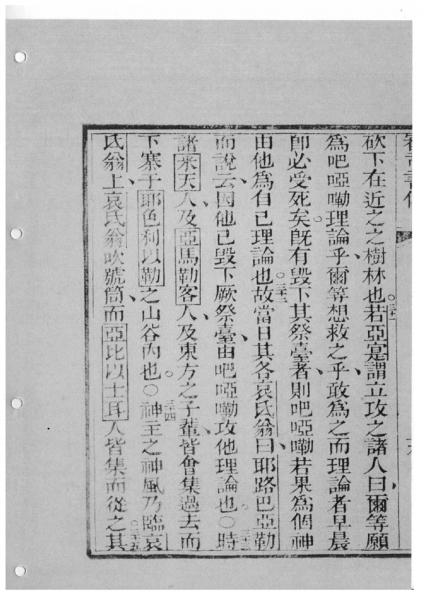 砍下在近之之樹林也若亞㝠謂立攻之諸人曰爾等願
三一
為吧啞嘞理論乎爾等想救之乎敢為之而理論者早晨
即必受死矣既有毀下其祭臺者則吧啞嘞若果為個神
由他為自已理論也故當日其名哀氏翁曰耶路巴亞勒
三二
而說云因他已毀下厥祭臺由吧啞嘞攻他理論也○時
三三
諸米天人及亞馬勒客人及東方之子輩皆會集過去而
下寨于耶色利以勒之山谷內也○神主之神風乃臨哀
三四
氏翁上哀氏翁吹號筒而亞比以士耳人皆集而從之其
三五